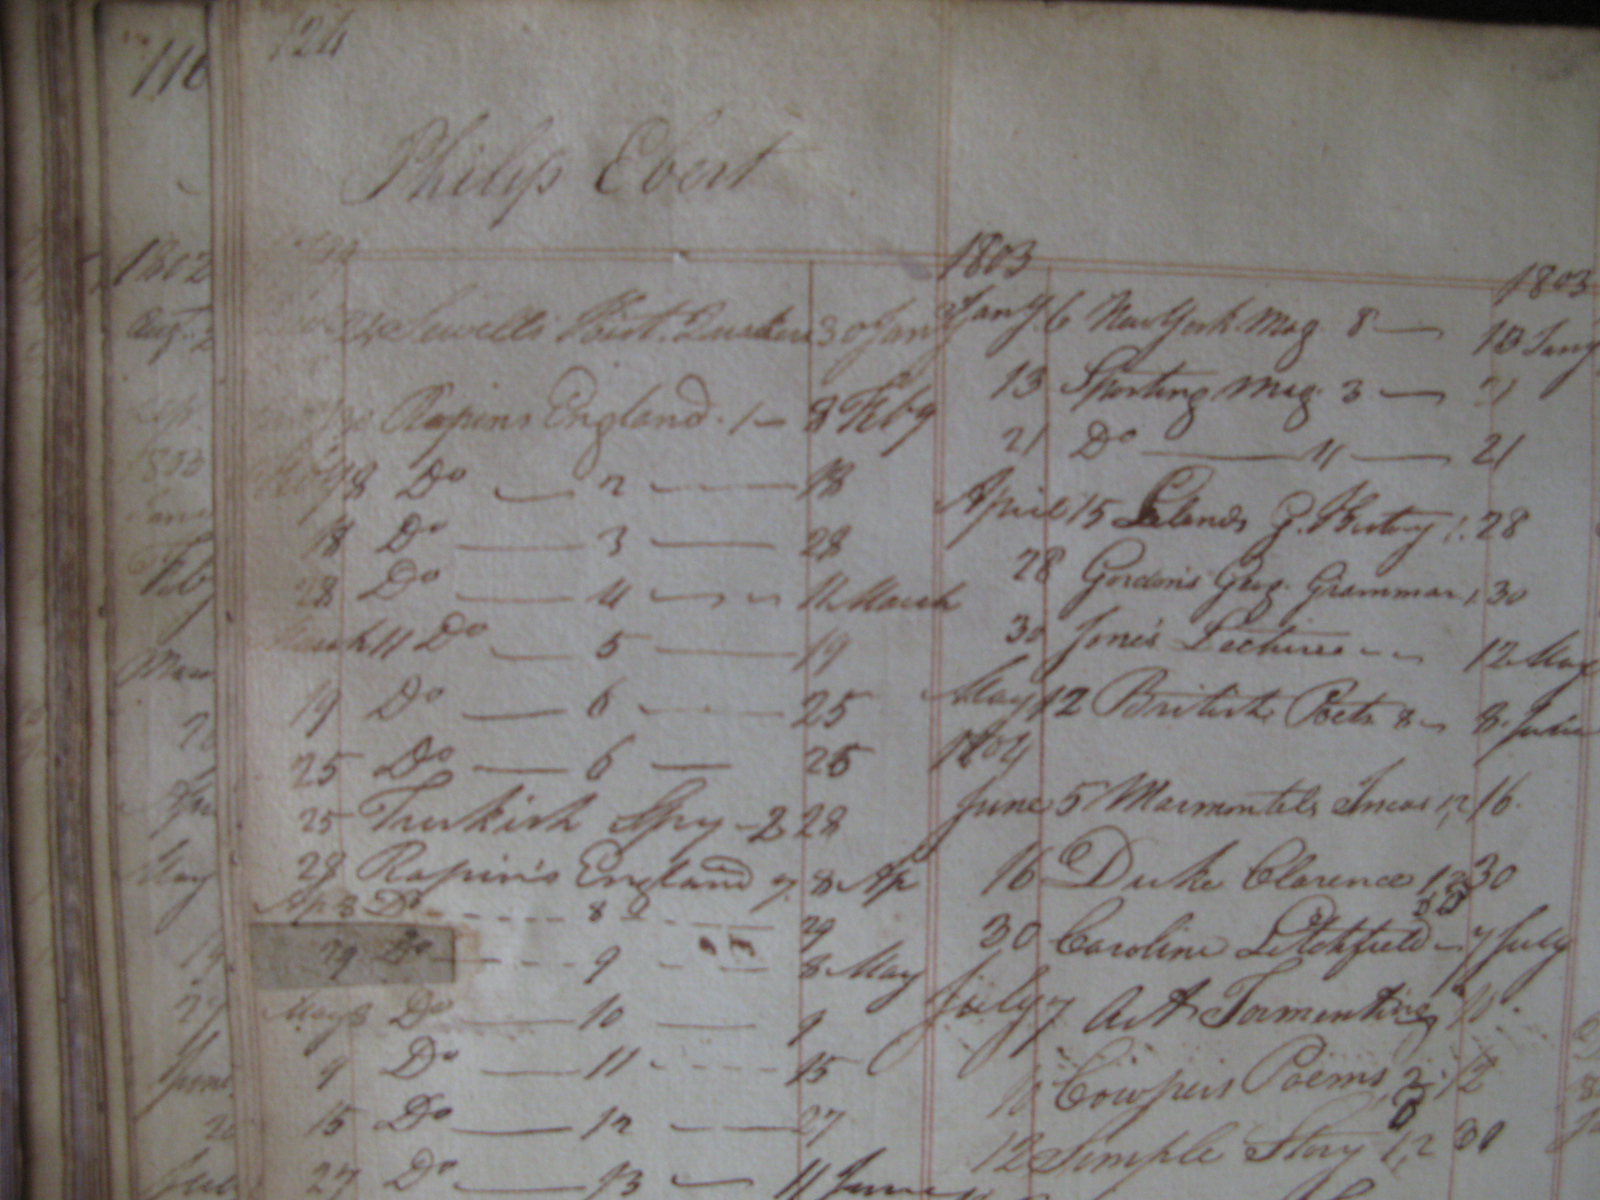 124
Philip Ebert
Sewells Hist. Quakers 30 Jany
Rapins England. 1 — 8 Feby
8 Do — 2 — 18
18 Do — 3 — 28
28 Do — 4 — 11 March
March 11 Do — 5 — 19
19 Do — 6 — 25
25 Do — 6 — 26
25 Turkish Spy - 2 28
28 Rapin's England 7. 8 Ap
Ap 8 Do - - - 8 - - - 29
29 Do - - 9 - - 8 May
May 8 Do — 10 — 9
9 Do — 11 - - - 15
15 Do — 12 — 27
27 Do — 13 — 11 June
1803
Jany. 6 New York Mag. 8 — 13 Jany
13 Sporting Mag. 3 — 21
21 Do — 4 — 21
April 15 Lelands P. History 1. 28
28 Gordon's Geog. Grammar, 30
30 Jone's Lectures - - 12 May
May 12 British Poets 8 — 8. June
1804
June 5 Marmontels Incas 1,2 16.
16 Duke Clarence 1,2 30
30 Caroline Litchfield - 7 July
July 7 Art Tormenting 10.
10 Cowpers Poems, 2. 12
12 Simple Story 1,2 30
1803
116
1802
Aug. 2
1803
Feb
May
June